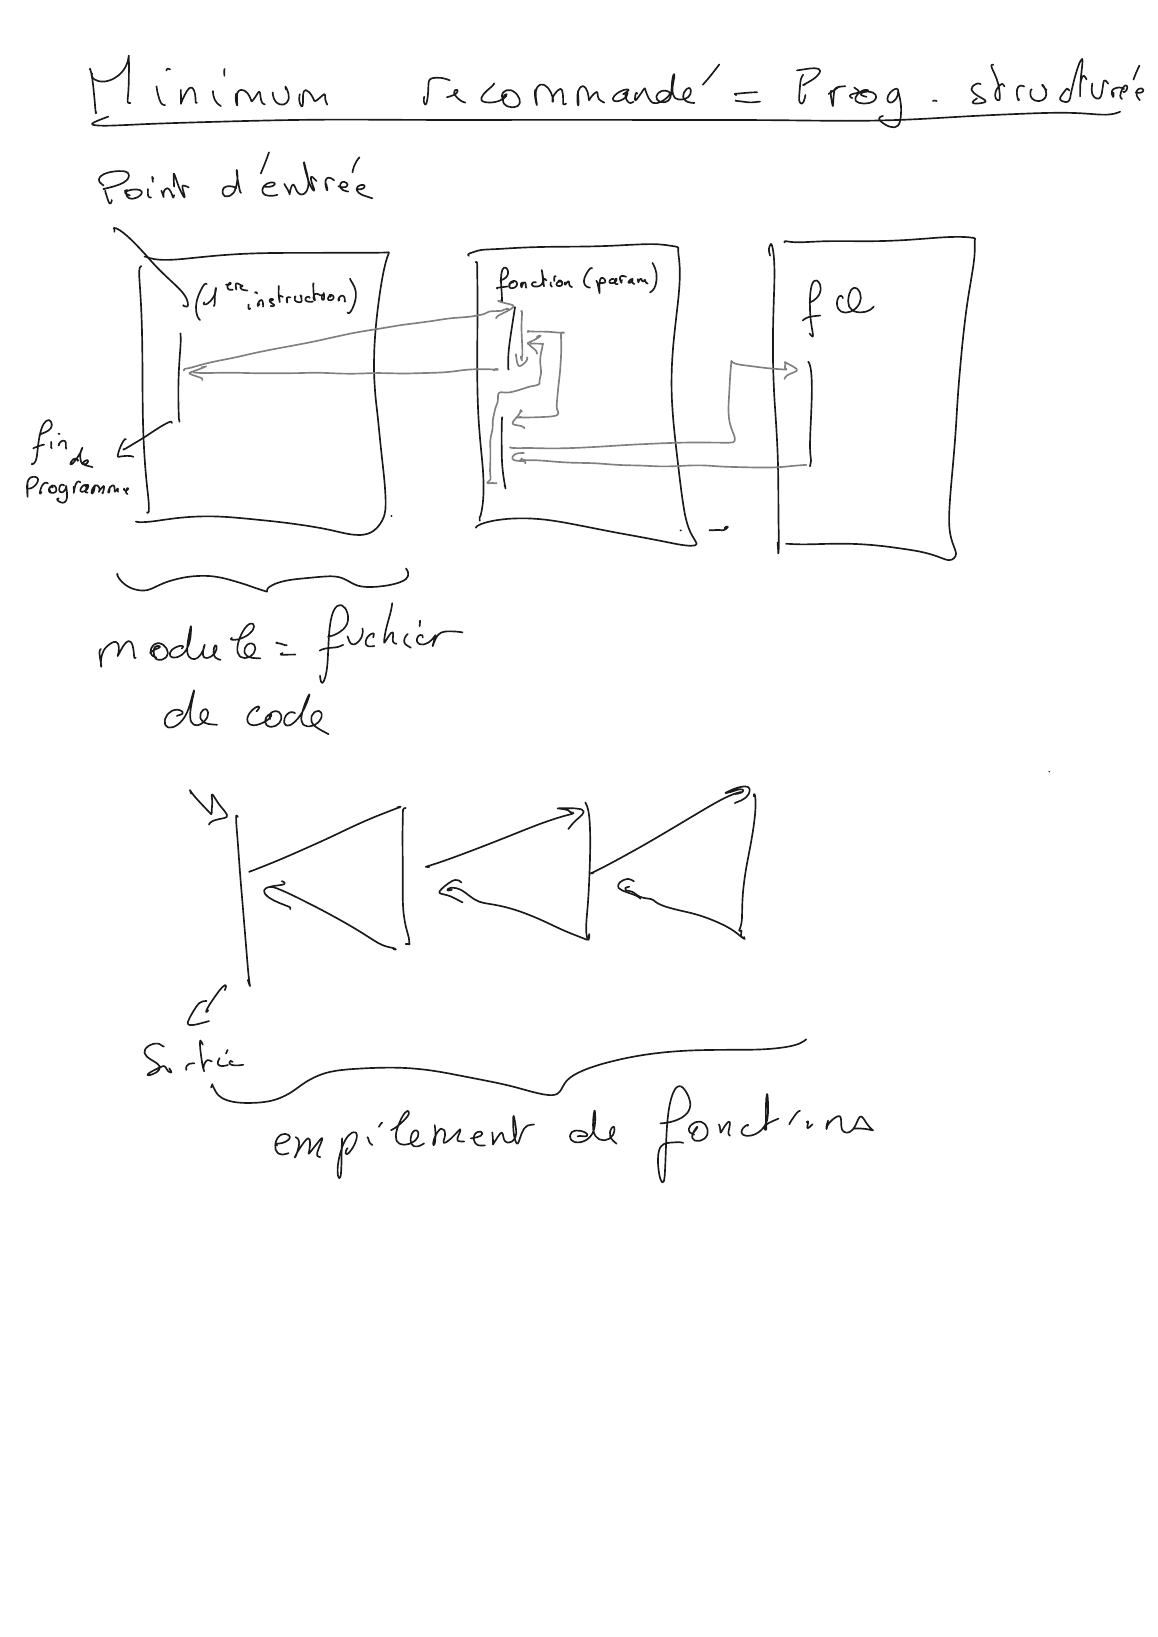 Minimum recommandé = Prog. structurée
Point d'entrée
(1ere instruction)
fonction (param)
fct
fin de
Programme
module = fichier
de code
Sortie
empilement de fonctions